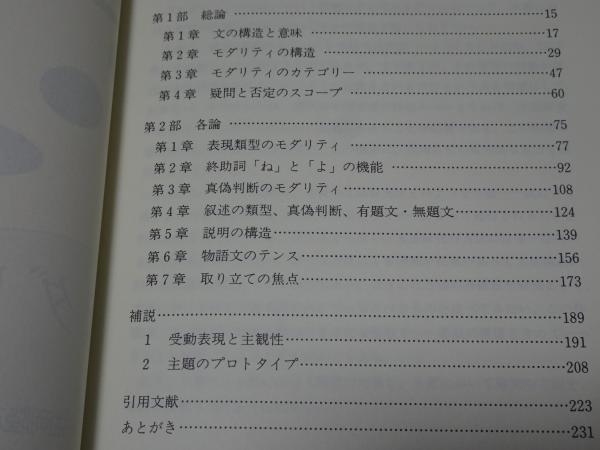 第1部 総論……15
第1章 文の構造と意味……17
第2章 モダリティの構造……29
第3章 モダリティのカテゴリー……47
第4章 疑問と否定のスコープ……60
第2部 各論……75
第1章 表現類型のモダリティ……77
第2章 終助詞「ね」と「よ」の機能……92
第3章 真偽判断のモダリティ……108
第4章 叙述の類型、真偽判断、有題文・無題文……124
第5章 説明の構造……139
第6章 物語文のテンス……156
第7章 取り立ての焦点……173
補説……189
1 受動表現と主観性……191
2 主題のプロトタイプ……208
引用文献……223
あとがき……231